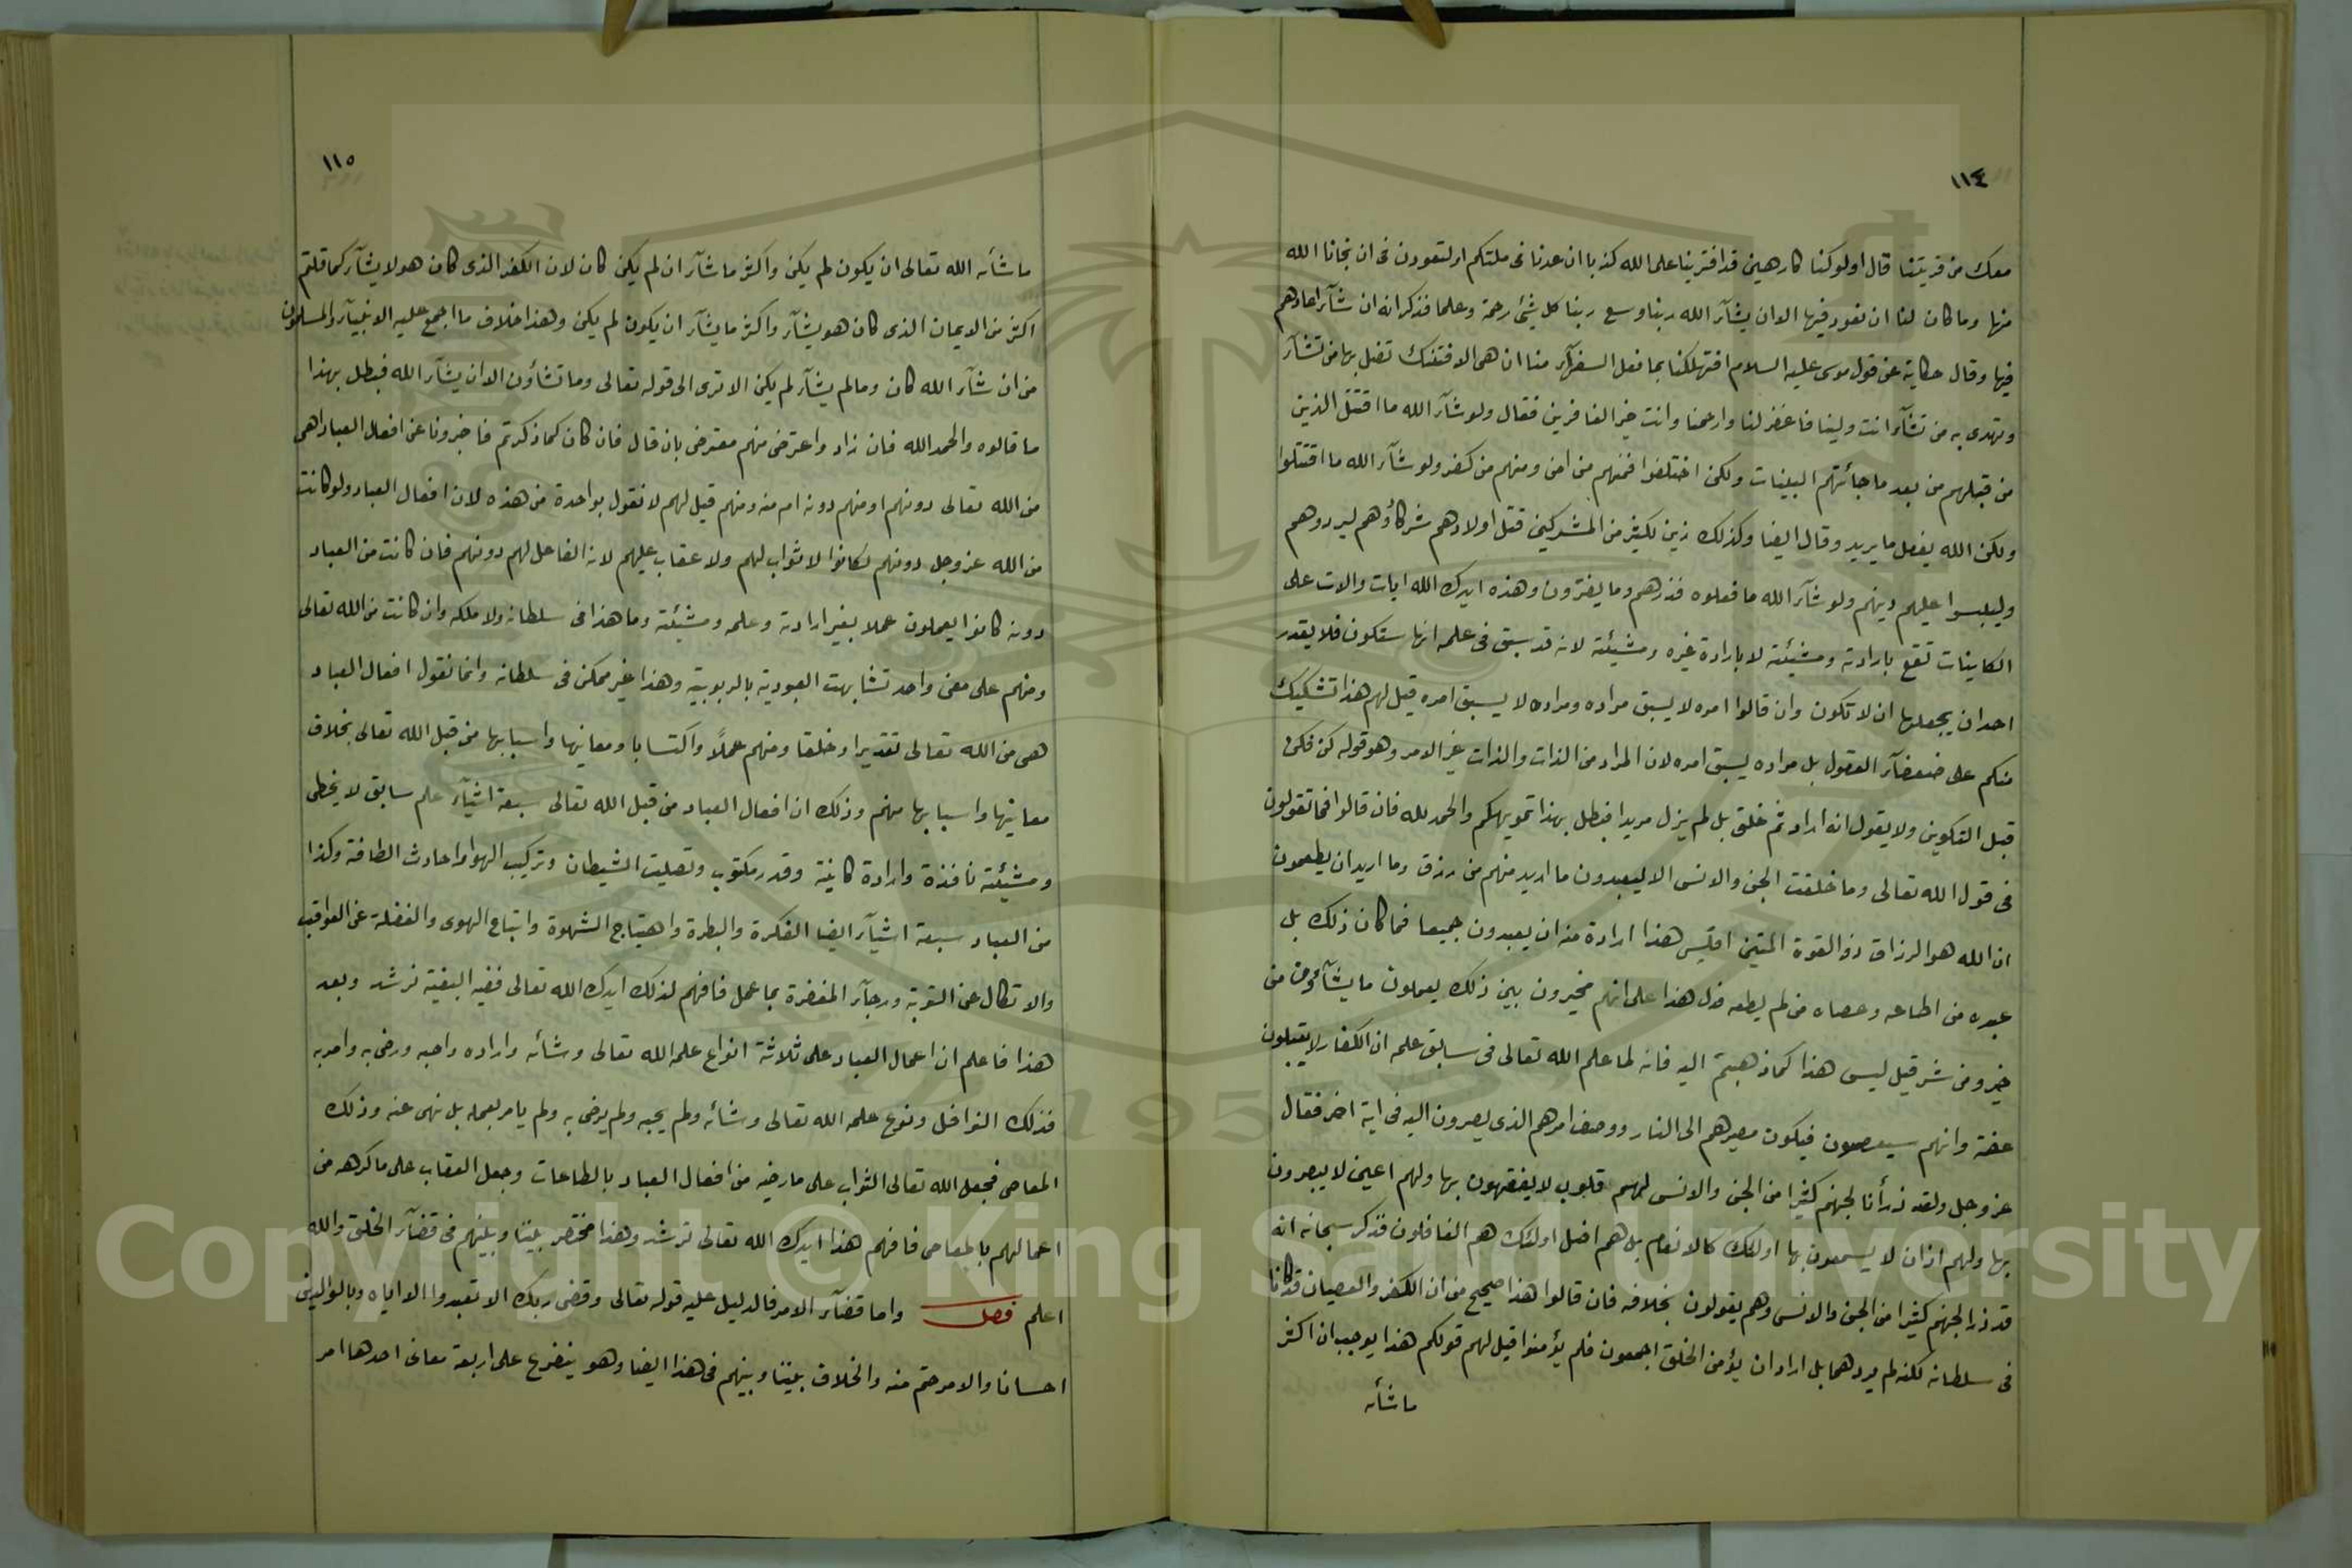 ١١٤
معك من قريتنا قال اولو كنا كارهين قد افترينا على الله كذبا ان عدنا في ملتكم او لتعودن في ان نجانا الله
منها وما كان لنا ان نعود فيها الا ان يشآء الله ربنا وسع ربنا كل شئ رحمة وعلما فذكر انه ان شآء اعادهم
فيها وقال حكاية عن قول موسى عليه السلام افتهلكنا بما فعل السفهآء منا ان هى الا فتنتك تضل بها من تشآء
وتهدى به من تشآء انت ولينا فاغفر لنا وارحمنا وانت خير الغافرين فقال ولو شآء الله ما اقتتل الذين
من قبلهم من بعد ما جائتهم البينات ولكن اختلفوا فمنهم من امن ومنهم من كفر ولو شآء الله ما اقتتلوا
ولكن الله يفعل ما يريد وقال ايضا وكذلك زين لكثير من المشركين قتل اولادهم شركاؤهم ليردوهم
وليلبسوا عليهم دينهم ولو شآء الله ما فعلوه فذرهم وما يفترون وهذه ايدك الله ايات والات على
الكاينات تقع بارادته ومشيئته لا بارادة غيره ومشيئته لانه قد سبق في علمه انها ستكون فلا يقدر
احد ان يجعلها ان لا تكون وان قالوا امره لا يسبق مراده ومراده لا يسبق امره قيل لهم هذا تشكيك
منكم على ضعفآء العقول بل مراده يسبق امره لان المراد من الذات والذات غير الامر وهو قوله كن فكن
قبل التكوين ولا يقول انه اراد ثم خلق بل لم يزل مريدا فبطل بهذا تمويهكم والحمد لله فان قالوا فما تقولون
في قول الله تعالى وما خلقت الجن والانس الا ليعبدون ما اريد منهم من رزق وما اريد ان يطعمون
ان الله هو الرزاق ذو القوة المتين افليس هذا ارادة منه ان يعبدون جميعا فما كان ذلك بل
عبده من اطاعه وعصاه من لم يطعه فدل هذا على انهم مخيرون بين ذلك يعملون ما يشآؤن من
خير ومن شر قيل ليس هذا كما ذهبتم اليه فانه لما علم الله تعالى في سابق علمه ان الكفار لا يقبلون
عنه وانهم سيعصون فيكون مصيرهم الى النار ووصف امرهم الذى يصيرون اليه في اية اخر فقال
عز وجل ولقد ذرأنا لجهنم كثيرا من الجن والانس لهم قلوب لا يفقهون بها ولهم اعين لا يبصرون
بها ولهم اذان لا يسمعون بها اولئك كالانعام بل هم اضل اولئك هم الغافلون فذكر سبحانه انه
قد ذرا لجهنم كثيرا من الجن والانس وهم يقولون بخلافه فان قالوا هذا صحيح من ان الكفر والعصيان قد كانا
في سلطانه لكنه لم يردهما بل اراد ان يؤمن الخلق اجمعون فلم يؤمنوا قيل لهم قولكم هذا يوجب ان اكثر
ما شأنه
١١٥
ما شأنه الله تعالى ان يكون لم يكن واكثر ما شآء ان لم يكن كان لان الكفر الذى كان هو لا يشآء كما قلتم
اكثر من الايمان الذى كان هو يشآء واكثر ما يشآء ان يكون لم يكن وهذا خلاف ما اجمع عليه الانبيآء والمسلمون
من ان شآء الله كان وما لم يشآء لم يكن الا ترى الى قوله تعالى وما تشاؤن الا ان يشآء الله فبطل بهذا
ما قالوه والحمد الله فان زاد واعترض منهم معترض بان قال فان كان كما ذكرتم فاخبرونا عن افعال العباد اهى
من الله تعالى دونهم او منهم دونه ام منه ومنهم قيل لهم لا نقول بواحدة من هذه لان افعال العباد ولو كانت
من الله عز وجل دونهم لكانوا لا ثواب لهم ولا عقاب عليهم لانه الفاعل لهم دونهم فان كانت من العباد
دونه كانوا يعملون عملا بغير ارادته وعلمه ومشيئته وما هذا في سلطانه ولا ملكه وان كانت من الله تعالى
ومنهم على معنى واحد تشابهت العبودية بالربوبية وهذا غير ممكن في سلطانه وانما نقول افعال العباد
هى من الله تعالى تقديرا وخلقا ومنهم عملاً واكتسابا ومعانيها واسبابها من قبل الله تعالى بخلاف
معانيها واسبابها منهم وذلك ان افعال العباد من قبل الله تعالى سبعة اشيآء علم سابق لا يخطى
ومشيئته نافذة وارادة كاينة وقدر مكتوب وتصليت الشيطان وتركيب الهوا واحادث الطاقة وكذا
من العباد سبعة اشيآء ايضا الفكرة والبطرة واهتياج الشهوة واتباع الهوى والغفلة عن العواقب
والاتكال عن التوبة ورجآء المغفرة بما عمل فافهم لذلك ايدك الله تعالى ففيه البغية ترشد وبعد
هذا فاعلم ان اعمال العباد على ثلاثة انواع علمه الله تعالى وشأنه واراده واحبه ورضى به وامر به
فذلك النوافل ونوع علمه الله تعالى وشائه ولم يحبه ولم يرضى به ولم يامر بعمله بل نهى عنه وذلك
المعاصى فجعل الله تعالى الثواب على ما رضيه من افعال العباد بالطاعات وجعل العقاب على ما كرهه من
اعمالهم بالمعاصى فافهم هذا ايدك الله تعالى ترشد وهذا مختصر بيننا وبينهم في قضآء الخلق والله
اعلم فصل واما قضآء الامر فالدليل عليه قوله تعالى وقضى ربك الا تعبدوا الا اياه وبالوالدين
احسانا والامر حتم منه والخلاف بيننا وبينهم في هذا ايضا وهو يتفرع على اربعة معانى احدها امر
Copyright © King Saud University
1957